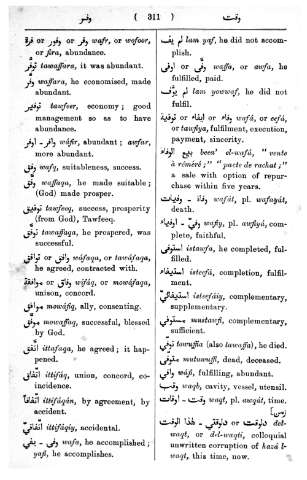 وفر ( 311 ) وقت
وفر or وفور or فرة wafr, or wafoor,
or fira, abundance.
توفر tawaffara, it was abundant.
وفر waffara, he economised, made
abundant.
توفير tawfeer, economy; good
management so as to have
abundance.
وافر - اوفر wáfir, abundant; awfar,
more abundant.
وفق wafq, suitableness, success.
وفق waffaqa, he made suitable;
(God) made prosper.
توفيق tawfeeq, success, prosperity
(from God), Tawfeeq.
توفق tawaffaqa, he prospered, was
successful.
وافق or توافق wáfaqa, or tawáfaqa,
he agreed, contracted with.
وفاق or موافقة wifáq, or mowáfaqa,
union, concord.
موافق mowáfiq, ally, consenting.
موفق mowaffaq, successful, blessed
by God.
اتفق ittafaqa, he agreed; it hap-
pened.
اتفاق ittifáq, union, concord, co-
incidence.
اتفاقا ittifáqàn, by agreement, by
accident.
اتفاقي ittifáqiy, accidental.
وفى - يفي wafa, he accomplished;
yafi, he accomplishes.
لم يف lam yaf, he did not accom-
plish.
وفى or اوفى waffa, or awfa, he
fulfilled, paid.
لم يوف lam yowaf, he did not
fulfil.
وفاء or ايفاء or توفية wafá, or eefá,
or tawfiya, fulfilment, execution,
payment, sincerity.
بيع الوفاء bee' el-wafá, "vente
à réméré;" "pacte de rachat;"
a sale with option of repur-
chase within five years.
وفاة - وفيات wafát, pl. wafayát,
death.
وفي wafiy, pl. awfiyá, com-
plete, faithful.
استوفى istawfa, he completed, ful-
filled.
استيفاء isteefá, completion, fulfil-
ment.
استيفائي isteefáiy, complementary,
supplementary.
مستوفي mustawfi, complementary,
sufficient.
توفى tuwuffia (also tawaffa), he died.
متوفي mutawuffi, dead, deceased.
وافي wáfi, fulfilling, abundant.
وقب waqb, cavity, vessel, utensil.
وقت waqt, pl. awqát, time.
[زمن]
دلوقت or دلوقتي - هذا الوقت del-
waqt, or del-waqti, colloquial
unwritten corruption of hazá l-
waqt, this time, now.